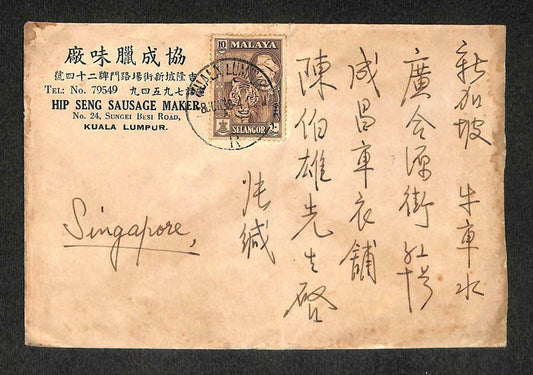 協成臘味廠
吉隆坡新街場路門牌二十四號
七九五四九
TEL: No. 79549
HIP SENG SAUSAGE MAKER
No. 24, SUNGEI BESI ROAD,
KUALA LUMPUR.
10
MALAYA
SELANGOR
KUALA LUMPUR
新加坡 牛車水
廣合源街
成昌車衣舖
陳伯雄先生啓
張緘
Singapore,